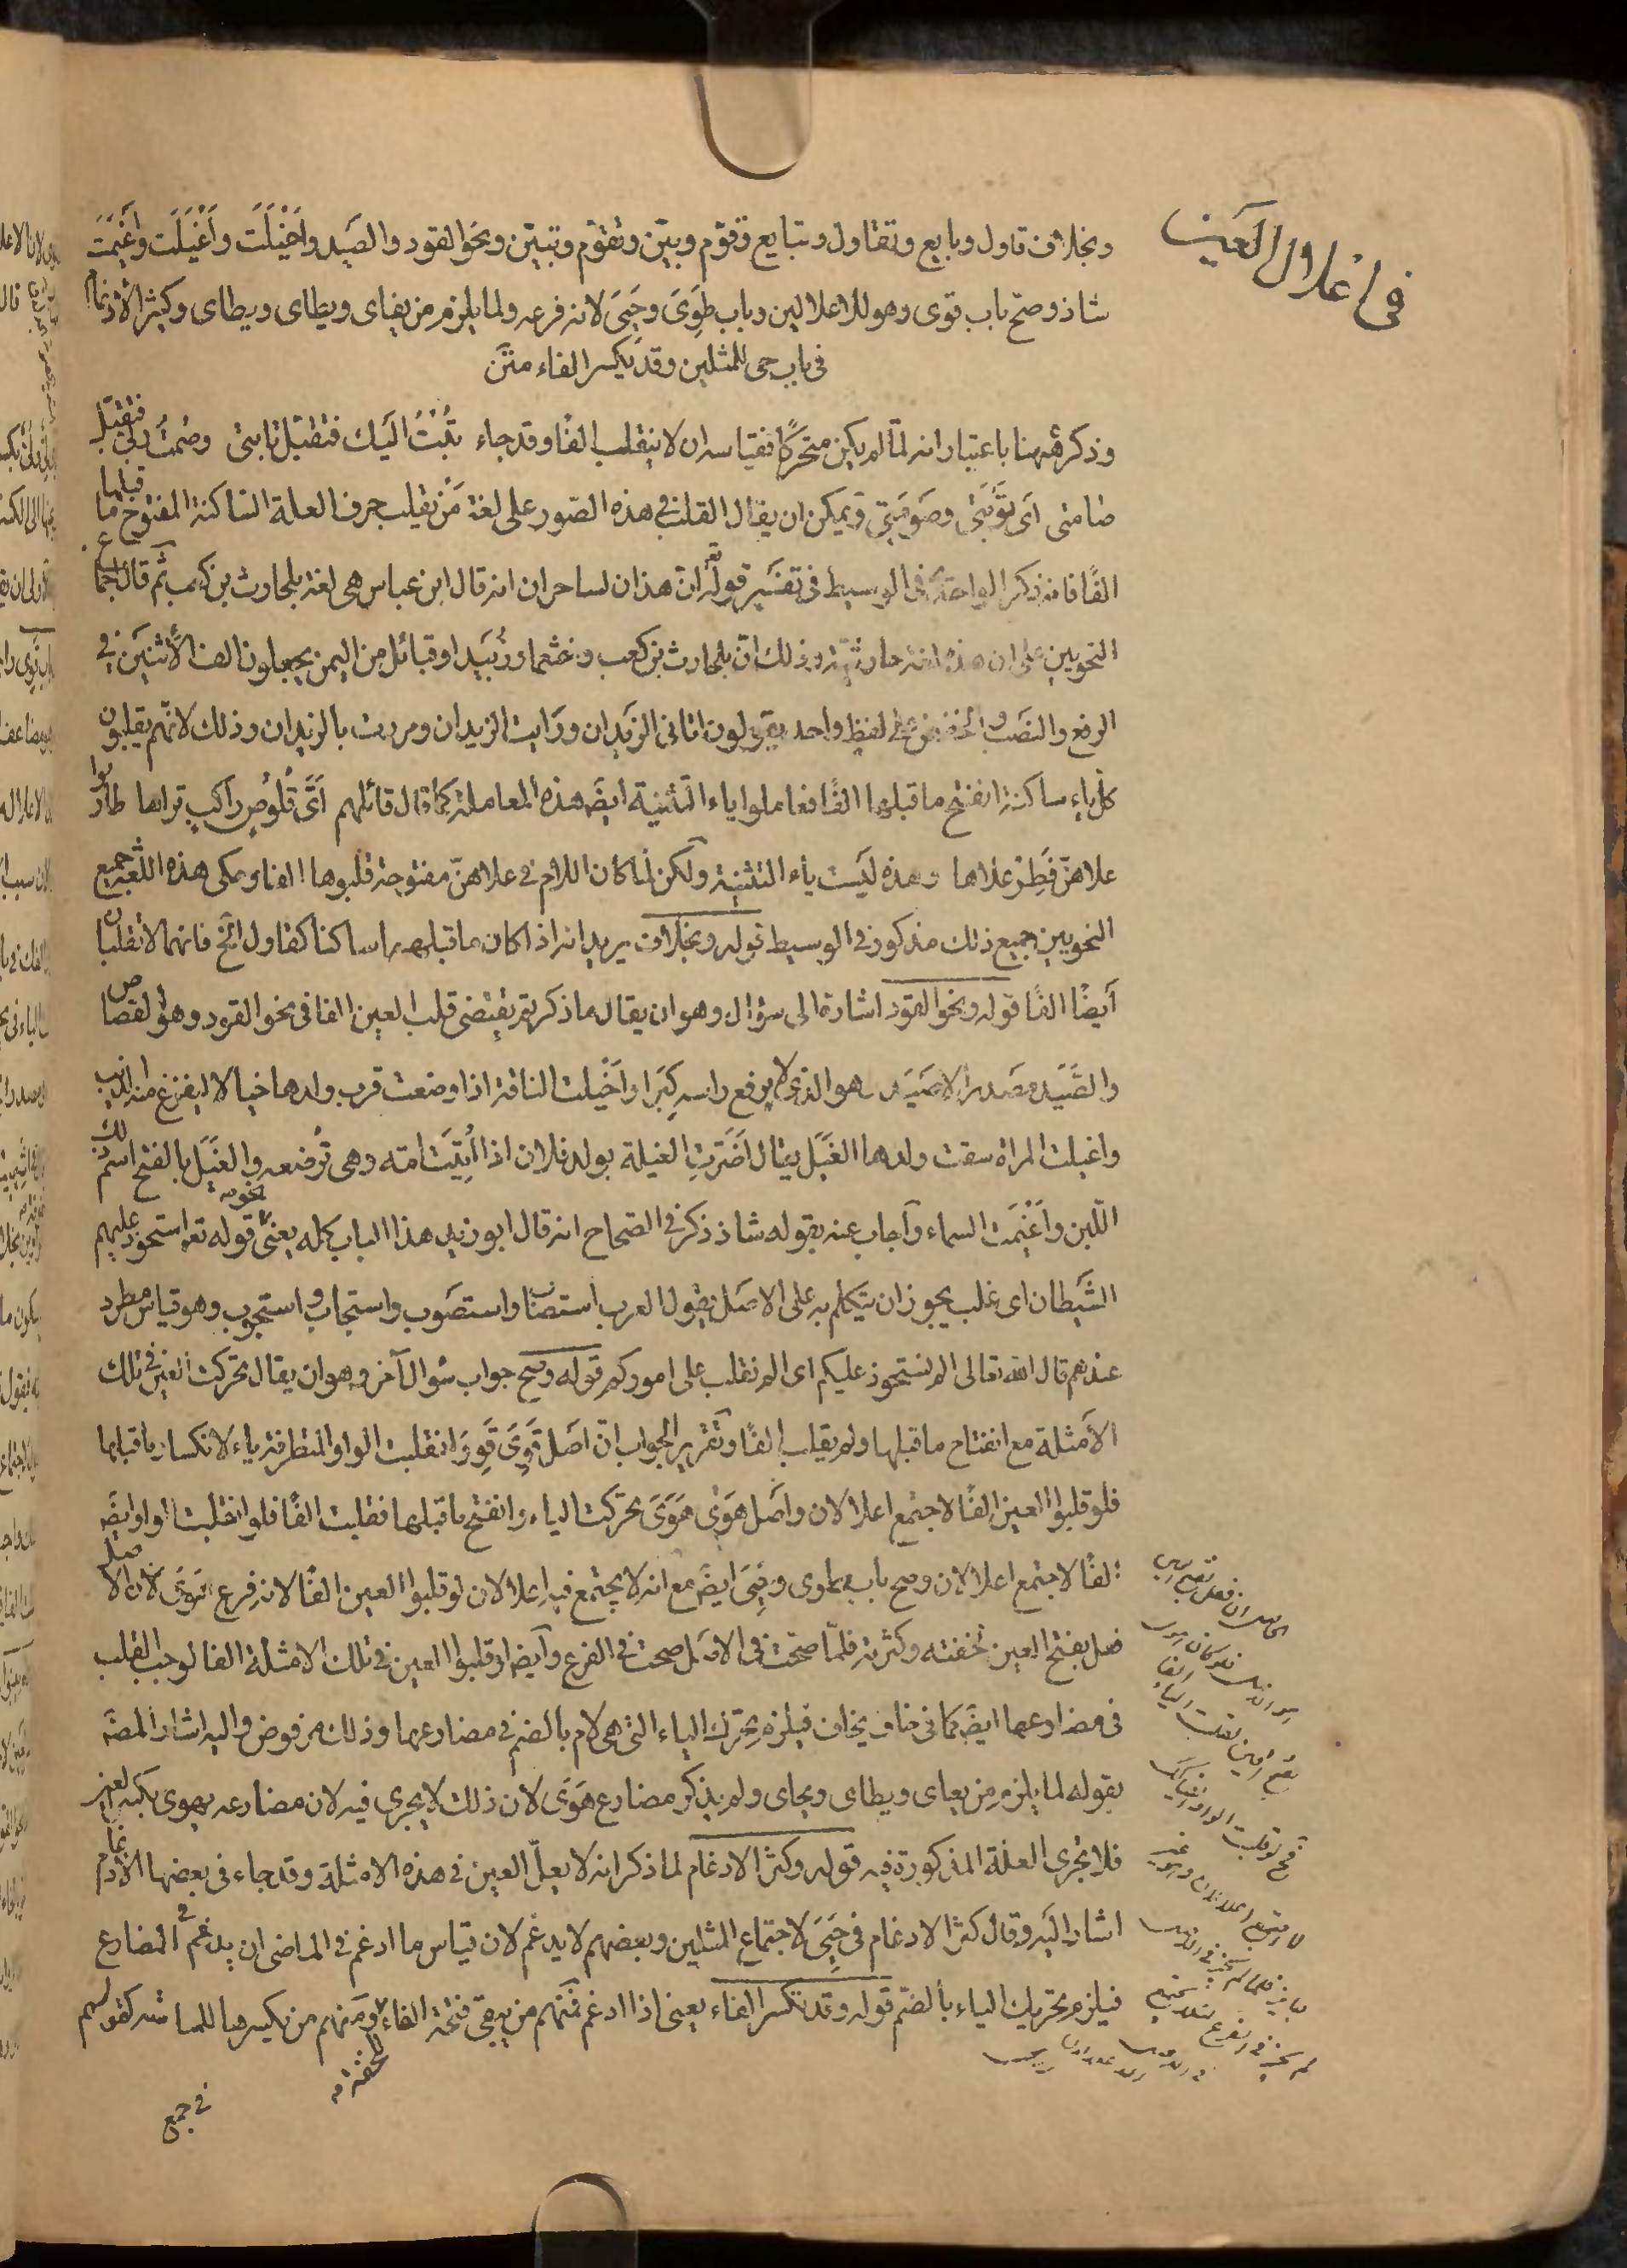 في اعلال العين
وبخلاف قاول وبايع وتقاول وتبايع وقوّم وبيّن وتقوّم وتبيّن ونحو القود والصَيد واَخْيَلَت واَغْيَلَت واَغْيَمَت
شاذ وصح باب قوى وهوى للاعلالين وباب طَوِىَ وحَيِىَ لانه فرعه ولما يلزم من يقاى ويطاى ويحاى وكثر الادغام
في باب حي للمثلين وقد يكسر الفاء متن
وذكر ههنا باعتبار انه لمّا لم يكن متحركًا فقياسه ان لا ينقلب الفًا وقد جاء تُبْتُ اليك فتقبّل تابتى وصُمتُ ربّى فتقبّل
صامتى اى تَوْبَتى وصَوْمَتى ويمكن ان يقال القلب في هذه الصّور على لغة مَنْ يقلب حرف العلة الساكنة المفتوح ما قبلها
الفًا فانه ذكر الواحدى في الوسيط في تفسير قوله تع انّ هذان لساحران انه قال ابن عباس هى لغة بلحارث بن كعب ثم قال اجماع
النحويين على ان هذه لغة حارثيّة وذلك انّ بلحارث بن كعب وخثعما وزُبَيدا وقبائل من اليمن يجعلون الف الاثنين في
الرفع والنصب والخفض على لفظ واحد يقولون اتانى الزيدان ورَايت الزيدان ومررت بالزيدان وذلك لانهم يقلبون
كل ياء ساكنة انفتح ما قبلها الفًا فعاملوا ياء التثنية ايضَ هذه المعاملة كما قال قائلهم اَىَّ قَلُوصٍ راكبٍ تراها طاروا
علاهنّ فَطِرْ علاها وهذه ليَست ياء التثنية ولكن لما كان اللام في علاهنّ مفتوحة قلبوها الفا وحكى هذه اللغة جميع
النحويين جميع ذلك مذكور في الوسيط قوله وبخلاف يريد انه اذا كان ما قبلهما ساكنا كقاول الخ فانهما لا تقلبان
اَيضًا الفًا قوله ونحو القود اشارة الى سؤال وهو ان يقال ما ذكرتم يقتضى قلب العين الفا في نحو القود وهو القصاص
والصَّيَد مصَدر الاصَيَد وهو الذى لا يرفع راسه كِبَرا واَخْيَلت الناقة اذا وضعت قرب ولدها خيالا ليفزع منه الذيب
واغيلت المراة سقت ولدها الغَيْل يقال اَضَرّت الغيلة بولد فلان اذا اُتِيَت امّه وهى تُرضعه والغَيْل بالفتح اسم ذلك
اللّبن واَغْيَمت السماء واَجاب عنه بقوله شاذ ذكر في الصحاح انه قال ابو زيد هذا الباب كله يعنى نحو قوله تع استحوذ عليهم
الشَيطان اى غلب يجوز ان يتكلم به على الاصَل تقول العرب استصاب واستصَوب واستجاب واستجوب وهو قياس مطرد
عندهم قال الله تعالى الم نستحوذ عليكم اى الم نغلب على اموركم قوله وصح جواب سُؤال آخر وهو ان يقال تحركت العين في تلك
الاَمثلة مع انفتاح ما قبلها ولم يقلب الفًا وتقرير الجواب انّ اصَل قَوِىَ قَوِوَ انقلبت الواو المتطرفة ياء لانكسار ما قبلها
فلو قلبوا العين الفًا لاجتمع اعلالان واصَل هَوَى هَوَىَ تحركت الياء وانفتح ما قبلها فقلبت الفًا فلو انقلبت الواو ايضَ
الفًا لاجتمع اعلالان وصح باب طوى وحَيِىَ ايضَ مع انه لا يجتمع فيه اعلالان لو قلبوا العين الفًا لانه فرع هَوَى لان الاصل
فعل بفتح العين لخفته وكثرته فلمّا صحّت في الاصَل صحت في الفرع واَيضَ لو قلبوا العين في تلك الامثلة الفا لوجب القلب
في مضارعها ايضَ كما في خاف يخاف فيلزم تحرّك الياء التى هى لام بالضم في مضارعها وذلك مرفوض واليه اشار المصَ
بقوله لما يلزم من يقاى ويطاى ويحاى ولم يذكر مضارع هَوَى لان ذلك لا يجرى فيه لان مضارعه يهوى بكسر العين
فلا تجرى العلة المذكورة فيه قوله وكثر الادغام لما ذكر انه لا يعلّ العين في هذه الامثلة وقد جاء في بعضها الادغام
اشار اليَه وقال كثر الادغام في حَيِىَ لاجتماع المثلين وبعضهم لا يدغم لان قياس ما ادغم في الماضى ان يدغم في المضارع
فيلزم تحريك الياء بالضّم قوله وقد تكسر الفاء يعنى اذا ادغم فمنهم من يبقى فتحة الفاء لخفته ومنهم من يكسرها للمناسبة كقولهم
في جمع